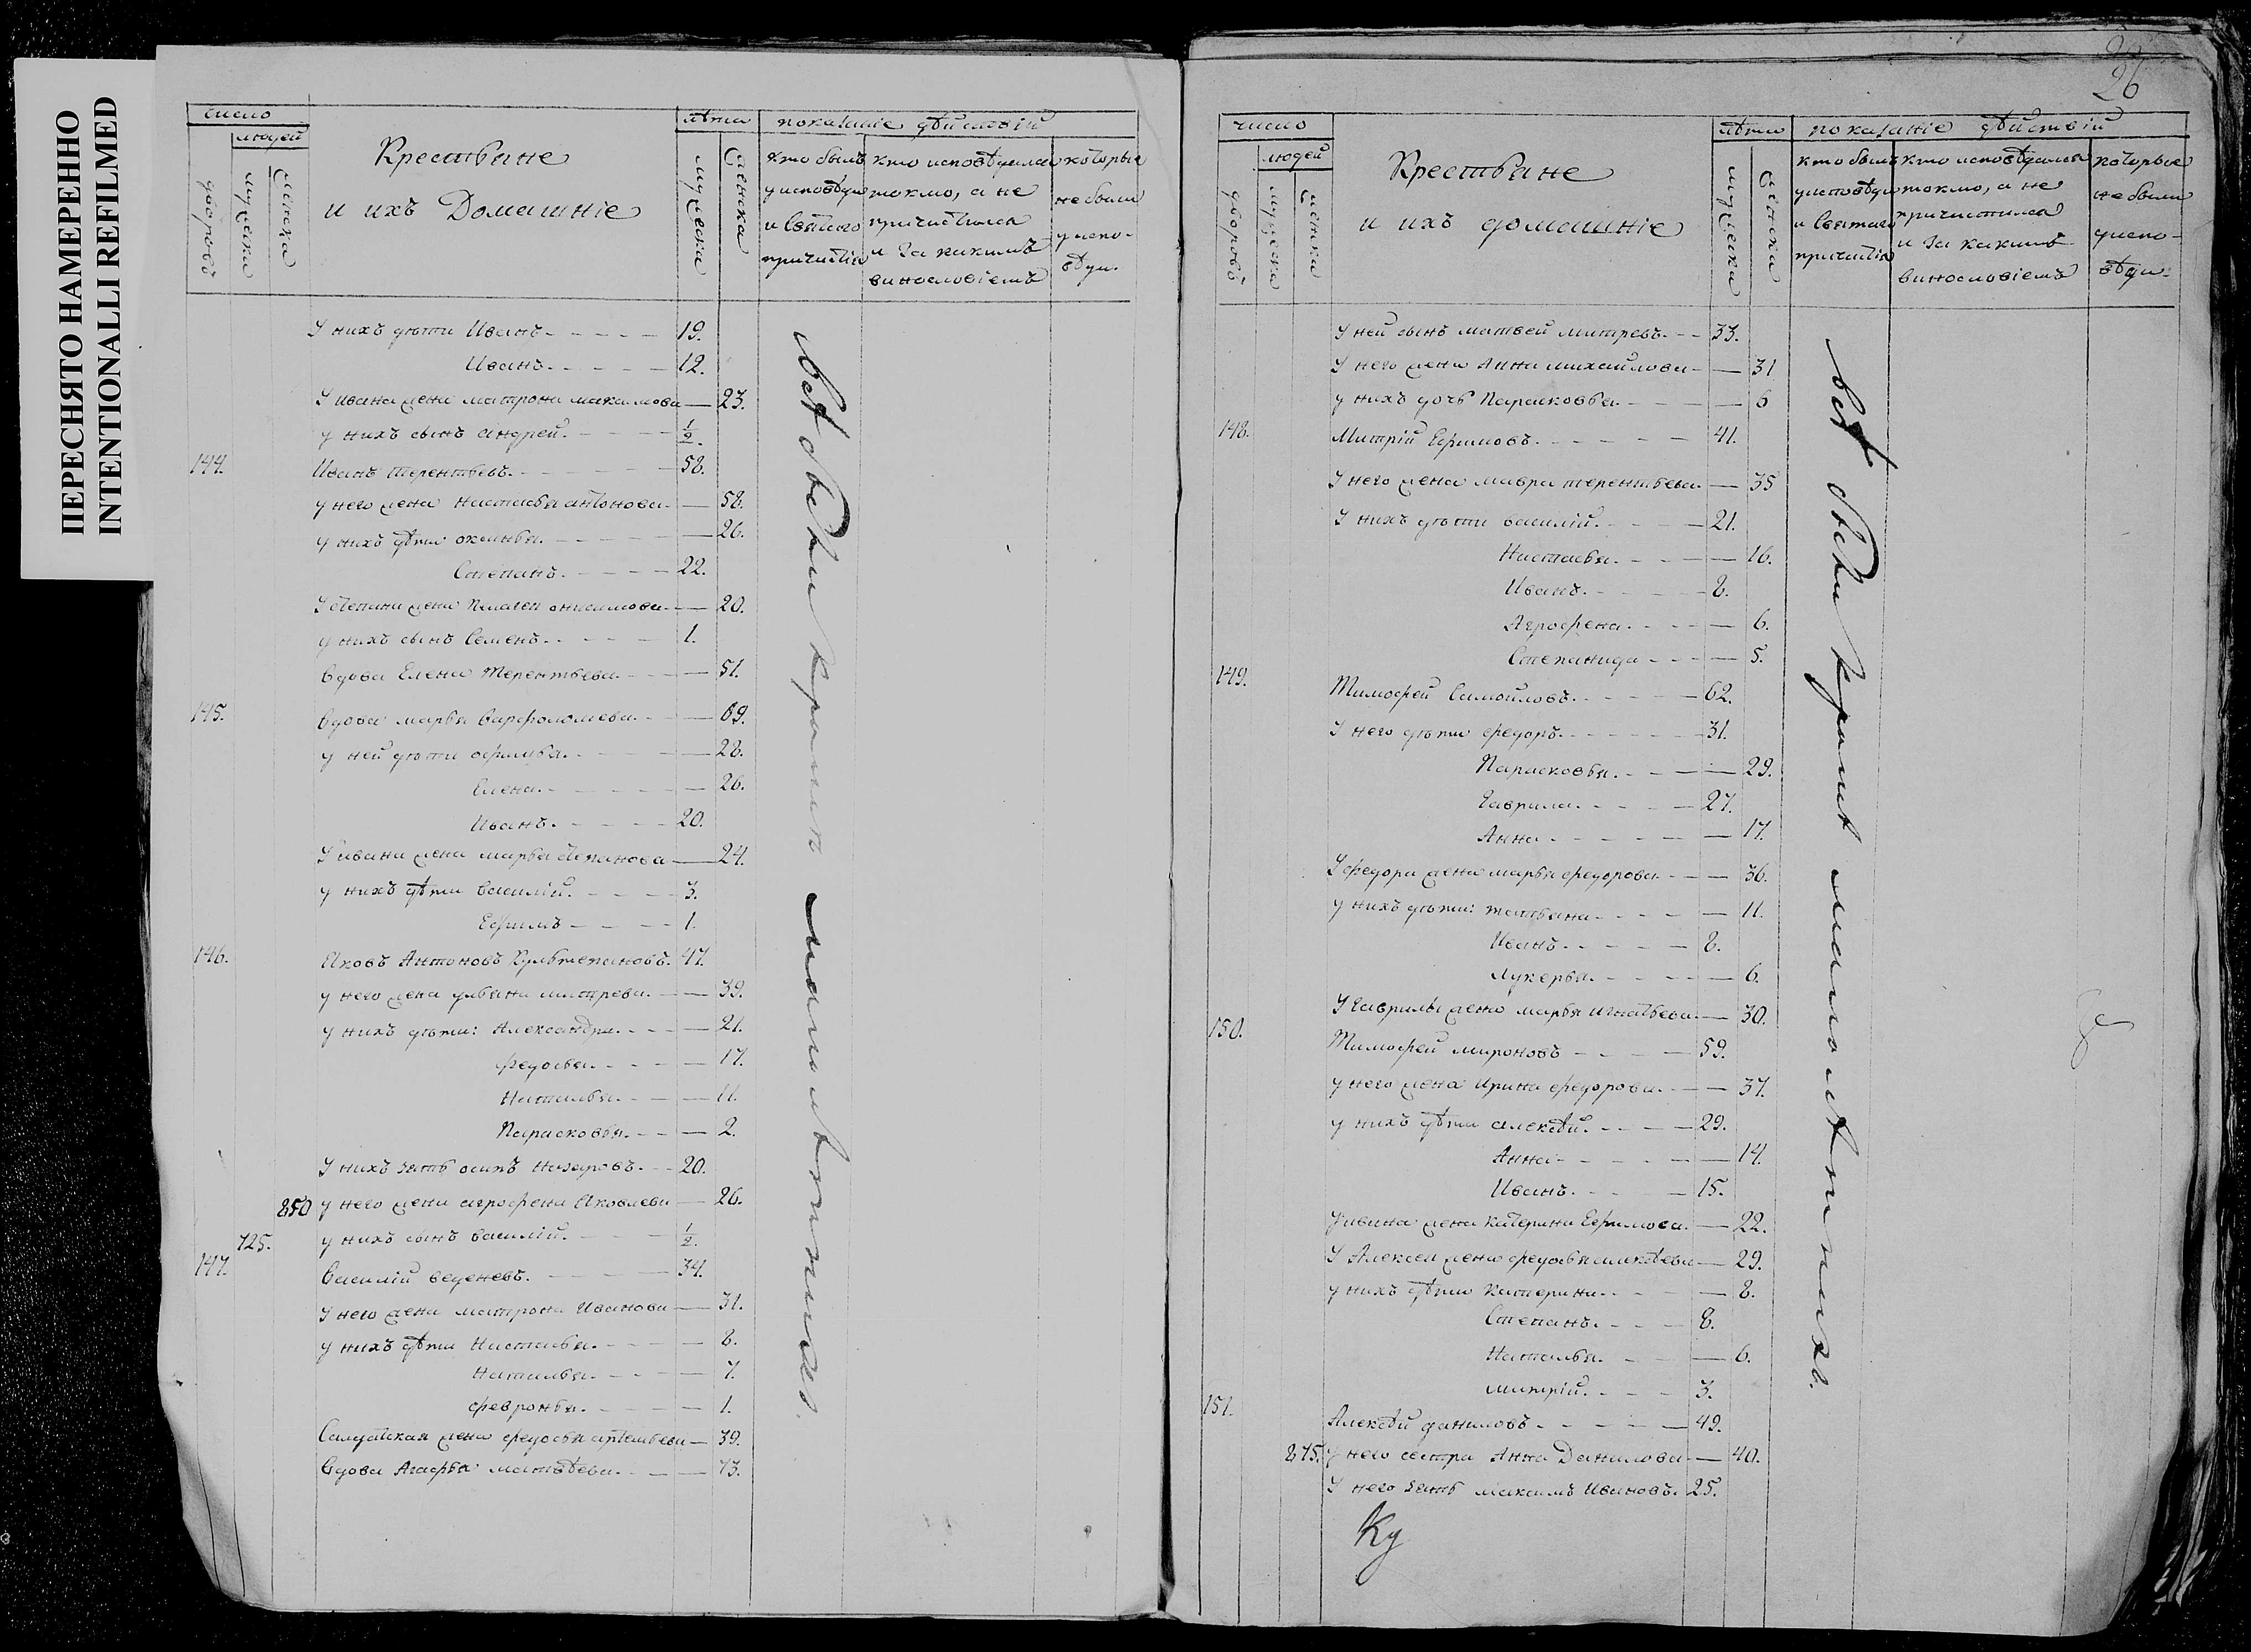 ПЕРЕСНЯТО НАМЕРЕННО
INTENTIONALLI REFILMED
число
людей
дворовъ
мужеска
женска
Крестьяне
и ихъ Домашніе
лѣта
мужеска
женска
показаніе дѣйствій
кто былъ
у исповѣди
и святаго
причастія
кто исповѣдался
токмо, а не
причастился
и за какимъ
винословіемъ
которые
не были
у испо-
вѣди.
У нихъ дѣти Иванъ. 19.
Иванъ. 12.
У ивана жена матрона максимова 23.
у нихъ сынъ андрей. 1/2.
144. Иванъ терентьевъ. 58.
у него жена настасья антонова 58.
у нихъ дѣти оксинья. 26.
Степанъ. 22.
У степана жена пелагея анисимова 20.
у нихъ сынъ Семенъ. 1.
Вдова Елена терентьева. 51.
145. Вдова марья варфоломеева. 69.
у ней дѣти офимья. 28.
Елена. 26.
Иванъ. 20.
У ивана жена марья степанова 24.
у нихъ дѣти василій. 3.
Ефимъ 1.
146. Яковъ Антоновъ Культепановъ. 47.
у него жена ульяна митрева. 39.
у нихъ дѣти: Александра. 21.
федосья. 17.
Наталья. 11.
Парасковья. 2.
У нихъ зять осипъ назаровъ. 20.
850 у него жена агрофена Яковлева 26.
725. у нихъ сынъ василій. 1/2.
147. Василій веденевъ. 34.
У него жена матрона Иванова 31.
у нихъ дѣти Настасья. 8.
Наталья. 7.
февронья. 1.
Салдатская жена федосья артемьева 39.
Вдова Агафья матвѣева. 73.
всѣ были кромѣ малолѣтнихъ.
26
число
людей
дворовъ
мужеска
женска
Крестьяне
и ихъ домашніе
лѣта
мужеска
женска
показаніе дѣйствій
кто былъ
у исповѣди
и святаго
причастія
кто исповѣдался
токмо, а не
причастился
и за какимъ
винословіемъ
которые
не были
у испо-
вѣди.
У ней сынъ матвей митревъ. 33.
У него жена Анна михайлова 31
у нихъ дочь Парасковья. 6
148. Митрій Ефимовъ. 41.
У него жена мавра терентьева. 35
У нихъ дѣти василій. 21.
Настасья. 16.
Иванъ. 8.
Агрофена. 6.
Степанида 5.
149. Тимофей Самойловъ. 62.
У него дѣти федоръ. 31.
Парасковья. 29.
Гаврила. 27.
Анна 17.
У федора жена марья федорова. 36.
у нихъ дѣти: татьяна. 11.
Иванъ. 8.
Лукерья. 6.
У Гаврилы жена марья игнатьева. 30.
150. Тимофей мироновъ 59.
у него жена Ирина федорова. 37.
у нихъ дѣти алексѣй. 29.
Анна 14.
Иванъ. 15.
У ивана жена катерина Ефимова. 22.
У Алексея жена федосья алексѣева 29.
у нихъ дѣти Катерина. 8.
Степанъ. 8.
Наталья. 6.
митрій. 3.
151. Алексѣй даниловъ 49.
875. у него сестра Анна Данилова 40.
У него зять максимъ Ивановъ. 25.
всѣ были кромѣ малолѣтнихъ.
Ку